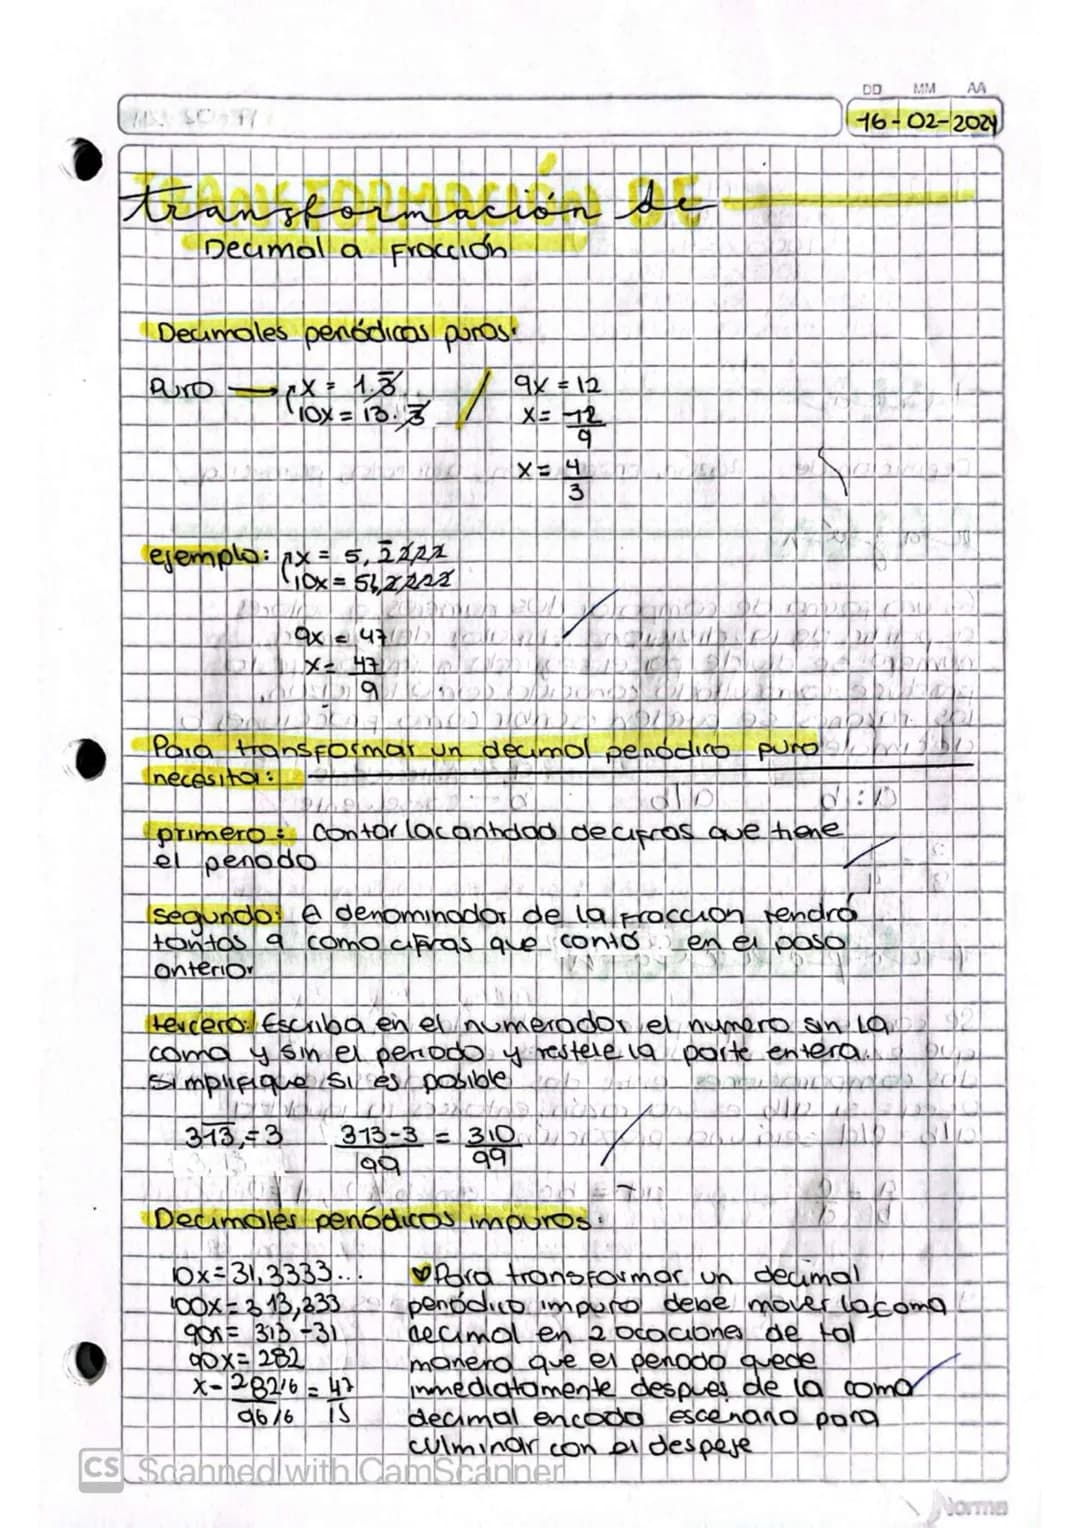 DD MM AA
16-02-2024
transformación de
Decimal a Fracción
Decimales periódicos puros:
Puro → x = 1.3̅
10x = 13.3̅
9x = 12
x = 12/9
x = 4/3
ejemplo: x = 5,2̅222
10x = 52,2222
9x = 47
x = 47/9
Para transformar un decimal periódico puro
necesito:
primero: Contar la cantidad de cifros que tiene
el periodo
segundo: el denominador de la fraccion tendrá
tantos 9 como cifras que contó en el paso
anterior
tercero: Escriba en el numerador el numero sin la
coma y sin el periodo y restele la parte entera.
simplifique si es posible
313,-3 313-3/99 = 310/99
Decimales periódicos impuros:
10x=31,3333...
100x=313,333
90x= 313-31
90x= 282
x-282÷6/90÷6 = 47/15
Para transformar un decimal
periódico impuro debe mover la coma
decimal en 2 ocaciones de tal
manera que el periodo quede
inmediatamente despues de la coma
decimal en cada escenario para
culminar con el despeje
CS Scanned with CamScanner
Norma